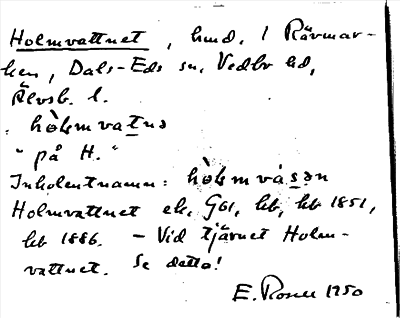 Holmvattnet, hmd. i Rävmar-
ken, Dals-Eds sn, Vedbo hd,
Älvsb. l.
hòlmvatnə
"på H."
Inbolentnamn: hòlmvásən
Holmvattnet ek, GGl, kb, kb 1851,
kb 1886. – Vid tjärnet Holm-
vattnet. Se detta!
E. Rosell 1950